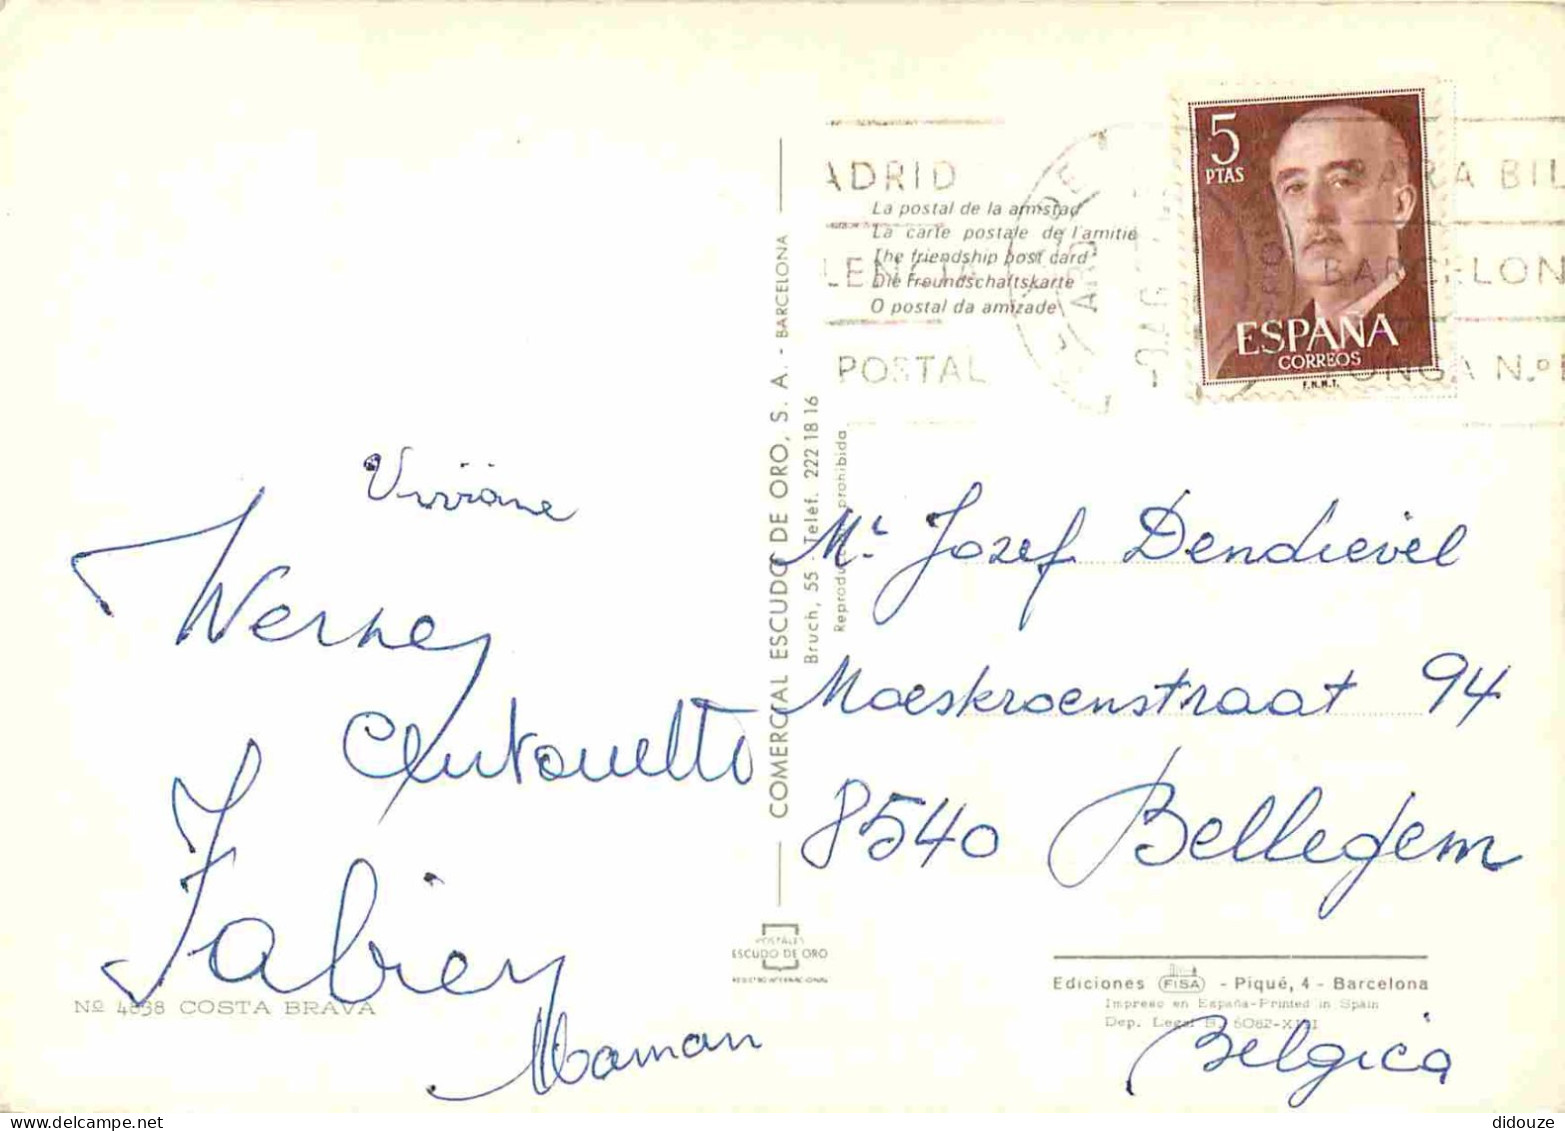 Viviane
Werner
Antonette
Fabien
Maman
Nº 4838 COSTA BRAVA
COMERCIAL ESCUDO DE ORO, S. A. - BARCELONA
Bruch, 55 - Teléf. 222 18 16
prohibida
POSTALES
ESCUDO DE ORO
REGISTRO INTERNACIONAL
ADRID
LENCIA
POSTAL
La postal de la amistad
La carte postale de l'amitie
The friendship post card
Die Freundschaftskarte
O postal da amizade
5
PTAS
ESPAÑA
CORREOS
F.N.M.T.
PARA BIL
BARCELON
N.º
Mr Jozef Dendievel
Moeskroenstraat 94
8540 Bellegem
Belgica
Ediciones FISA - Piqué, 4 - Barcelona
Impreso en España-Printed in Spain
Dep. Legal B. 6082-XIII
didouze